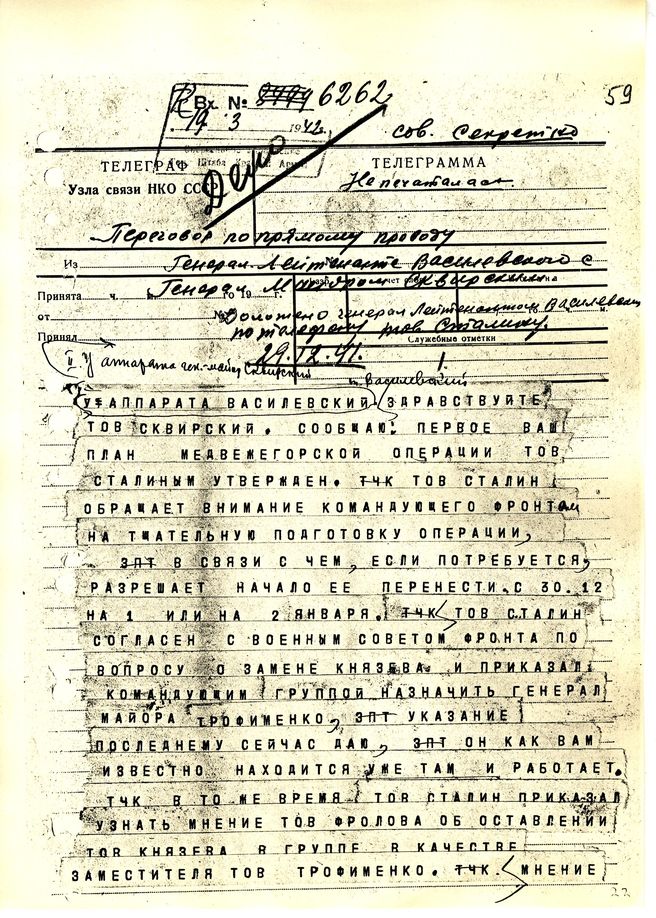 59
Вх. № 6262
19 3 1942
сов. Секретно
Дело
ТЕЛЕГРАФ ТЕЛЕГРАММА
Узла связи НКО СССР Не печаталась.
Переговор по прямому проводу
Из Генерал-Лейтенанта Василевского с
Генерал Майором Сквирским
Принята ч. м. го 19 г.
от № Доложено генерал Лейтенантом Василевским
Принял по телефону тов. Сталину.
Служебные отметки
29.12.41.
II У аппарата ген.-майор Сквирский
Василевский
У АППАРАТА ВАСИЛЕВСКИЙ ЗДРАВСТВУЙТЕ
ТОВ СКВИРСКИЙ. СООБЩАЮ: ПЕРВОЕ ВАШ
ПЛАН МЕДВЕЖЕГОРСКОЙ ОПЕРАЦИИ ТОВ
СТАЛИНЫМ УТВЕРЖДЕН. ТЧК ТОВ СТАЛИН
ОБРАЩАЕТ ВНИМАНИЕ КОМАНДУЮЩЕГО ФРОНТОМ
НА ТЩАТЕЛЬНУЮ ПОДГОТОВКУ ОПЕРАЦИИ,
ЗПТ В СВЯЗИ С ЧЕМ, ЕСЛИ ПОТРЕБУЕТСЯ,
РАЗРЕШАЕТ НАЧАЛО ЕЕ ПЕРЕНЕСТИ С 30.12
НА 1 ИЛИ НА 2 ЯНВАРЯ. ТЧК ТОВ СТАЛИН
СОГЛАСЕН С ВОЕННЫМ СОВЕТОМ ФРОНТА ПО
ВОПРОСУ О ЗАМЕНЕ КНЯЗЕВА И ПРИКАЗАЛ
КОМАНДУЮЩИМ ГРУППОЙ НАЗНАЧИТЬ ГЕНЕРАЛ
МАЙОРА ТРОФИМЕНКО, ЗПТ УКАЗАНИЕ
ПОСЛЕДНЕМУ СЕЙЧАС ДАЮ, ЗПТ ОН КАК ВАМ
ИЗВЕСТНО НАХОДИТСЯ УЖЕ ТАМ И РАБОТАЕТ.
ТЧК В ТО ЖЕ ВРЕМЯ ТОВ СТАЛИН ПРИКАЗАЛ
УЗНАТЬ МНЕНИЕ ТОВ ФРОЛОВА ОБ ОСТАВЛЕНИИ
ТОВ КНЯЗЕВА В ГРУППЕ В КАЧЕСТВЕ
ЗАМЕСТИТЕЛЯ ТОВ ТРОФИМЕНКО. ТЧК. МНЕНИЕ
22